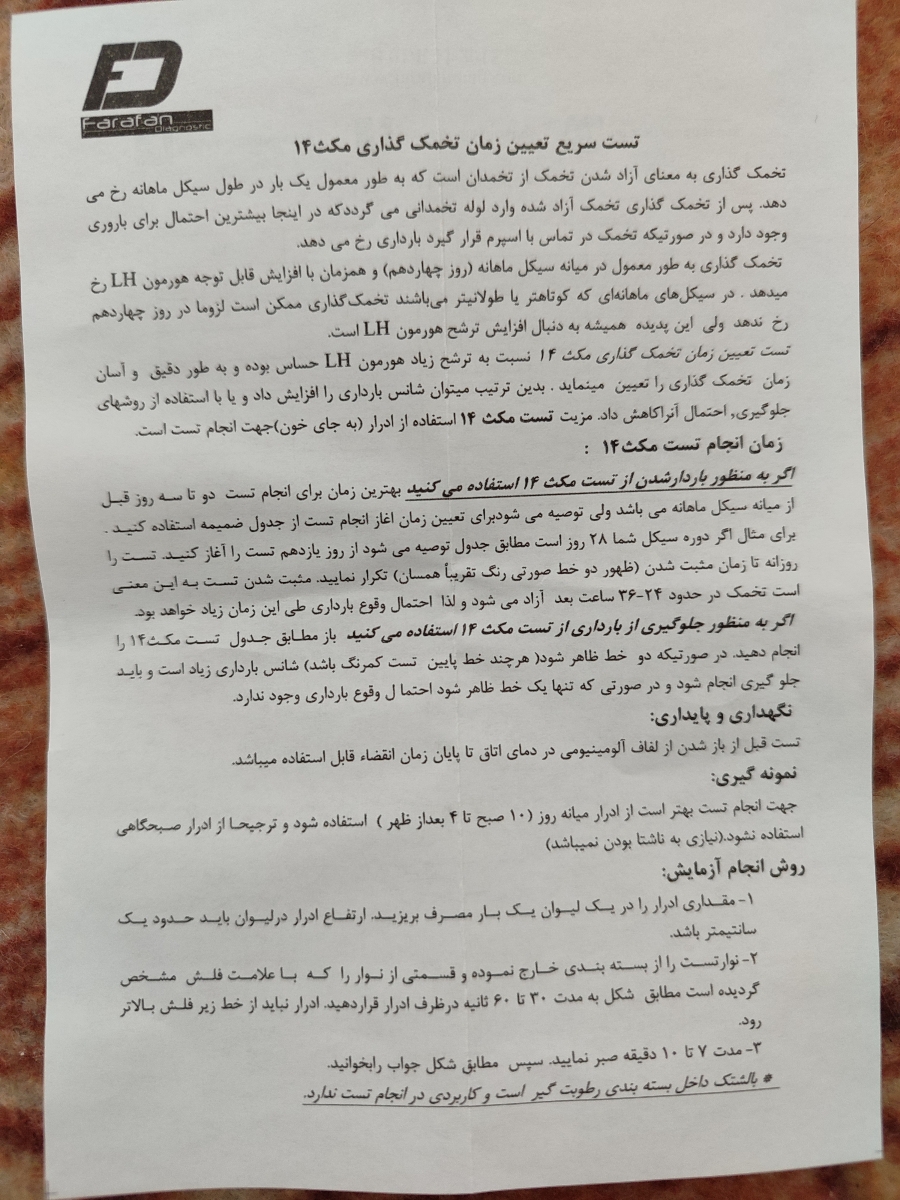 FD
Farafan
Diagnostic
تست سریع تعیین زمان تخمک گذاری مکث۱۴
تخمک گذاری به معنای آزاد شدن تخمک از تخمدان است که به طور معمول یک بار در طول سیکل ماهانه رخ می
دهد. پس از تخمک گذاری تخمک آزاد شده وارد لوله تخمدانی می گرددکه در اینجا بیشترین احتمال برای باروری
وجود دارد و در صورتیکه تخمک در تماس با اسپرم قرار گیرد بارداری رخ می دهد.
تخمک گذاری به طور معمول در میانه سیکل ماهانه (روز چهاردهم) و همزمان با افزایش قابل توجه هورمون LH رخ
میدهد . در سیکل‌های ماهانه‌ای که کوتاهتر یا طولانیتر می‌باشند تخمک‌گذاری ممکن است لزوما در روز چهاردهم
رخ ندهد ولی این پدیده همیشه به دنبال افزایش ترشح هورمون LH است.
تست تعیین زمان تخمک گذاری مکث ۱۴ نسبت به ترشح زیاد هورمون LH حساس بوده و به طور دقیق و آسان
زمان تخمک گذاری را تعیین مینماید . بدین ترتیب میتوان شانس بارداری را افزایش داد و یا با استفاده از روشهای
جلوگیری, احتمال آنراکاهش داد. مزیت تست مکث ۱۴ استفاده از ادرار (به جای خون)جهت انجام تست است.
زمان انجام تست مکث۱۴ :
اگر به منظور باردارشدن از تست مکث ۱۴ استفاده می کنید بهترین زمان برای انجام تست دو تا سه روز قبل
از میانه سیکل ماهانه می باشد ولی توصیه می شودبرای تعیین زمان اغاز انجام تست از جدول ضمیمه استفاده کنید .
برای مثال اگر دوره سیکل شما ۲۸ روز است مطابق جدول توصیه می شود از روز یازدهم تست را آغاز کنید. تست را
روزانه تا زمان مثبت شدن (ظهور دو خط صورتی رنگ تقریباً همسان) تکرار نمایید. مثبت شدن تست به این معنی
است تخمک در حدود ۲۴-۳۶ ساعت بعد آزاد می شود و لذا احتمال وقوع بارداری طی این زمان زیاد خواهد بود.
اگر به منظور جلوگیری از بارداری از تست مکث ۱۴ استفاده می کنید باز مطابق جدول تست مکث۱۴ را
انجام دهید. در صورتیکه دو خط ظاهر شود( هرچند خط پایین تست کمرنگ باشد) شانس بارداری زیاد است و باید
جلو گیری انجام شود و در صورتی که تنها یک خط ظاهر شود احتما ل وقوع بارداری وجود ندارد.
نگهداری و پایداری:
تست قبل از باز شدن از لفاف آلومینیومی در دمای اتاق تا پایان زمان انقضاء قابل استفاده میباشد.
نمونه گیری:
جهت انجام تست بهتر است از ادرار میانه روز (۱۰ صبح تا ۴ بعداز ظهر ) استفاده شود و ترجیحا از ادرار صبحگاهی
استفاده نشود.(نیازی به ناشتا بودن نمیباشد)
روش انجام آزمایش:
۱- مقداری ادرار را در یک لیوان یک بار مصرف بریزید. ارتفاع ادرار درلیوان باید حدود یک
سانتیمتر باشد.
۲- نوارتست را از بسته بندی خارج نموده و قسمتی از نوار را که با علامت فلش مشخص
گردیده است مطابق شکل به مدت ۳۰ تا ۶۰ ثانیه درظرف ادرار قراردهید. ادرار نباید از خط زیر فلش بالاتر
رود.
۳- مدت ۷ تا ۱۰ دقیقه صبر نمایید. سپس مطابق شکل جواب رابخوانید.
# بالشتک داخل بسته بندی رطوبت گیر است و کاربردی در انجام تست ندارد.